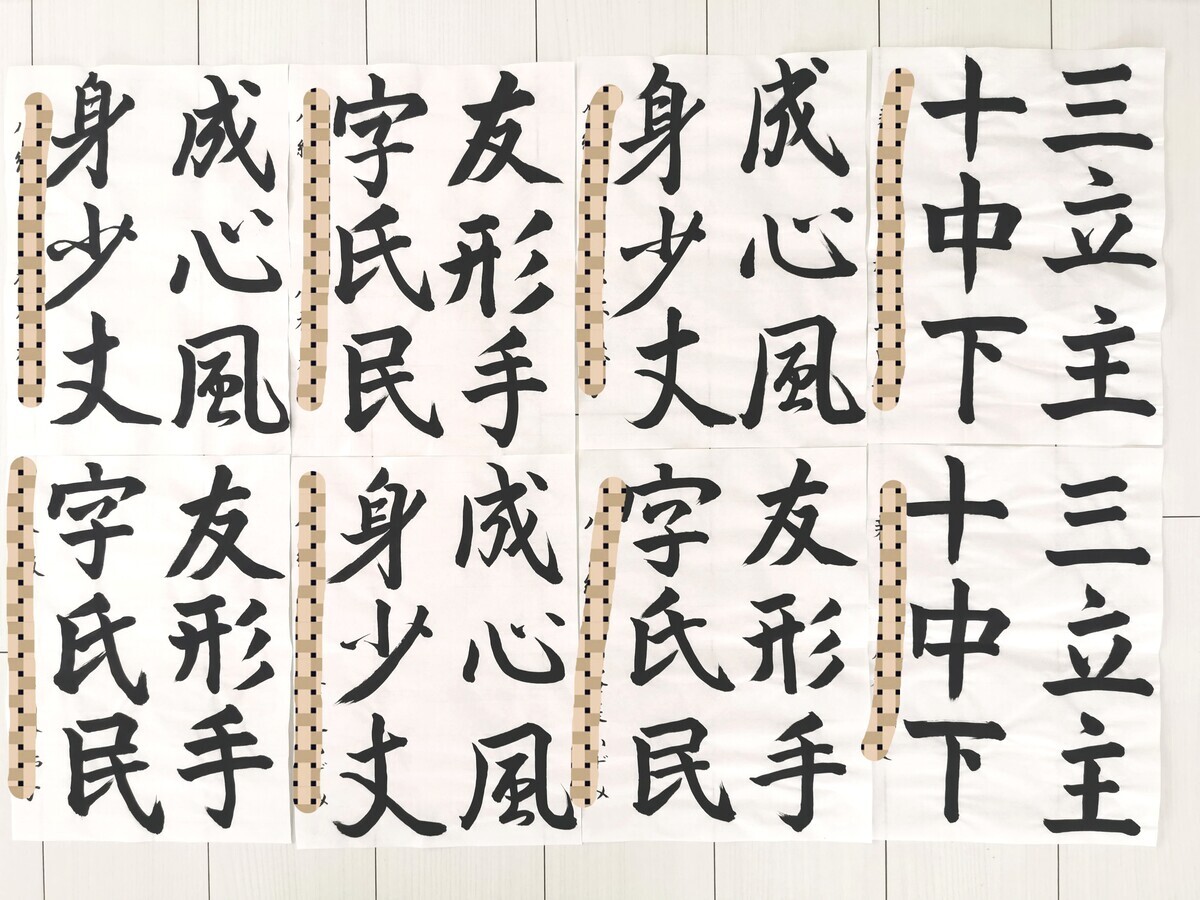 三立主
十中下
成心風
身少丈
友形手
字氏民
成心風
身少丈
三立主
十中下
友形手
字氏民
成心風
身少丈
友形手
字氏民